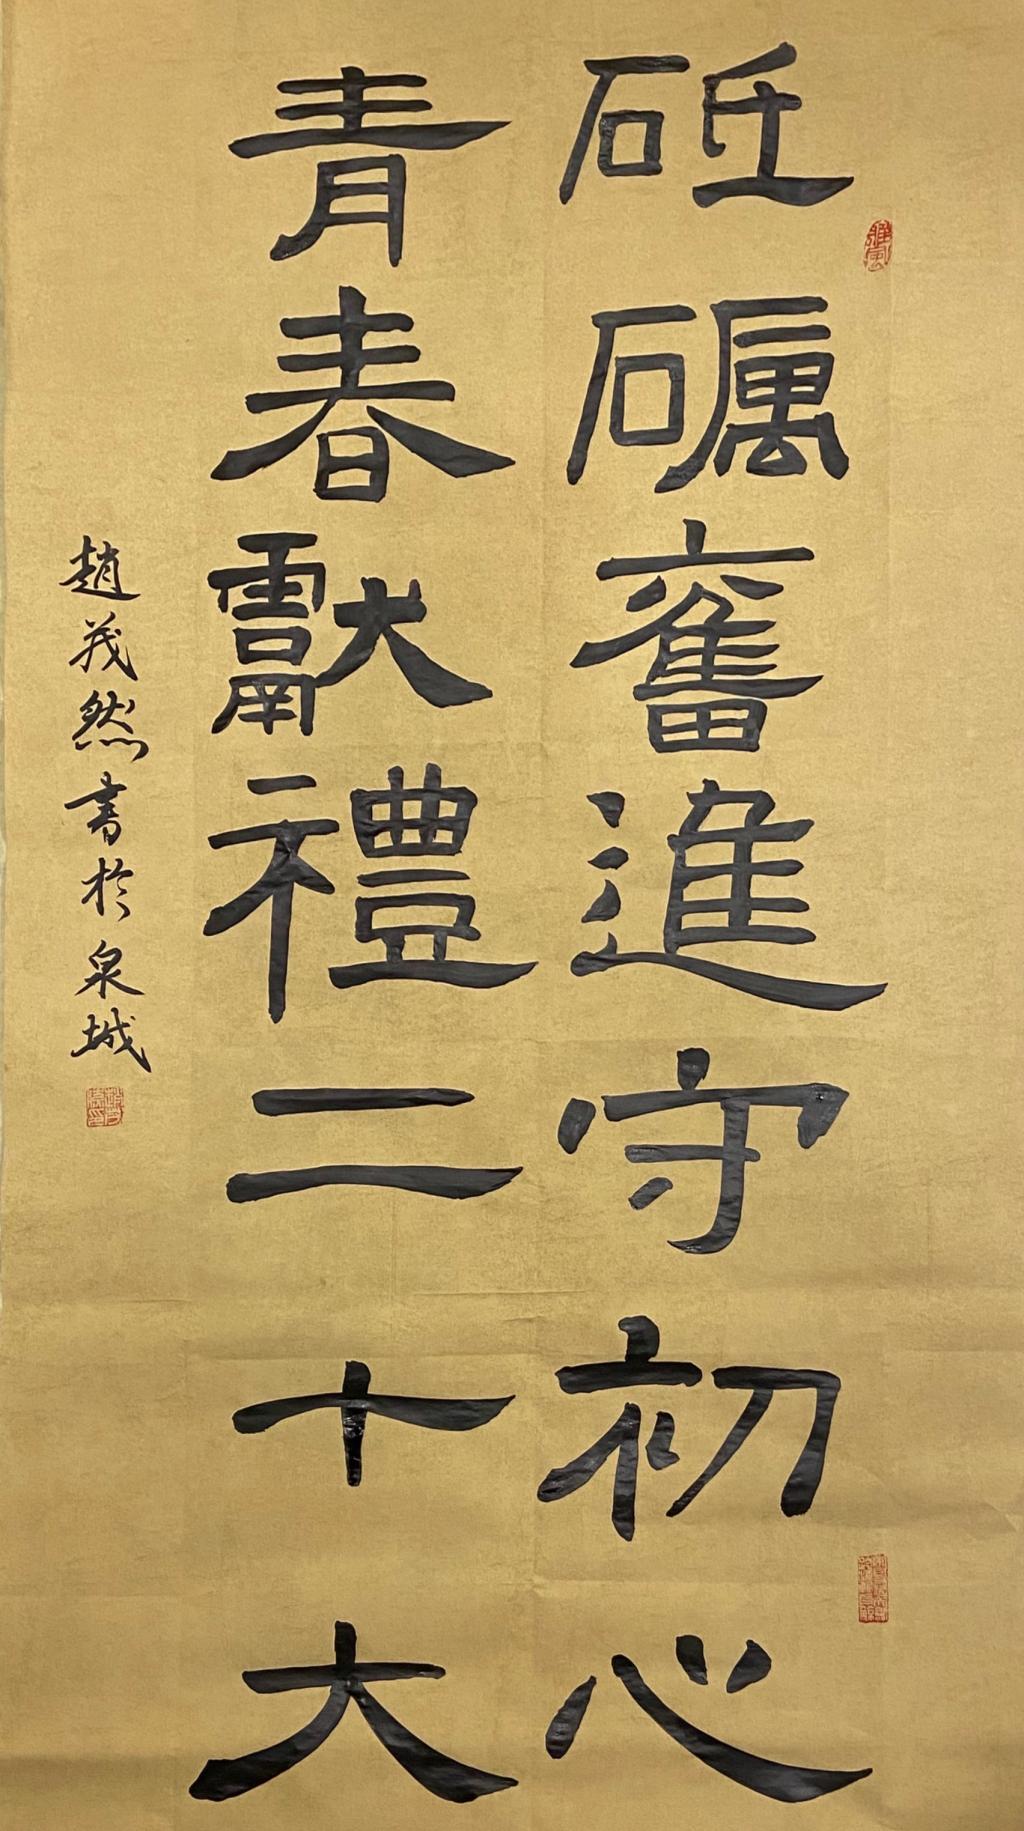 砥礪奮進守初心
青春獻禮二十大
趙茂然書於泉城
雅風